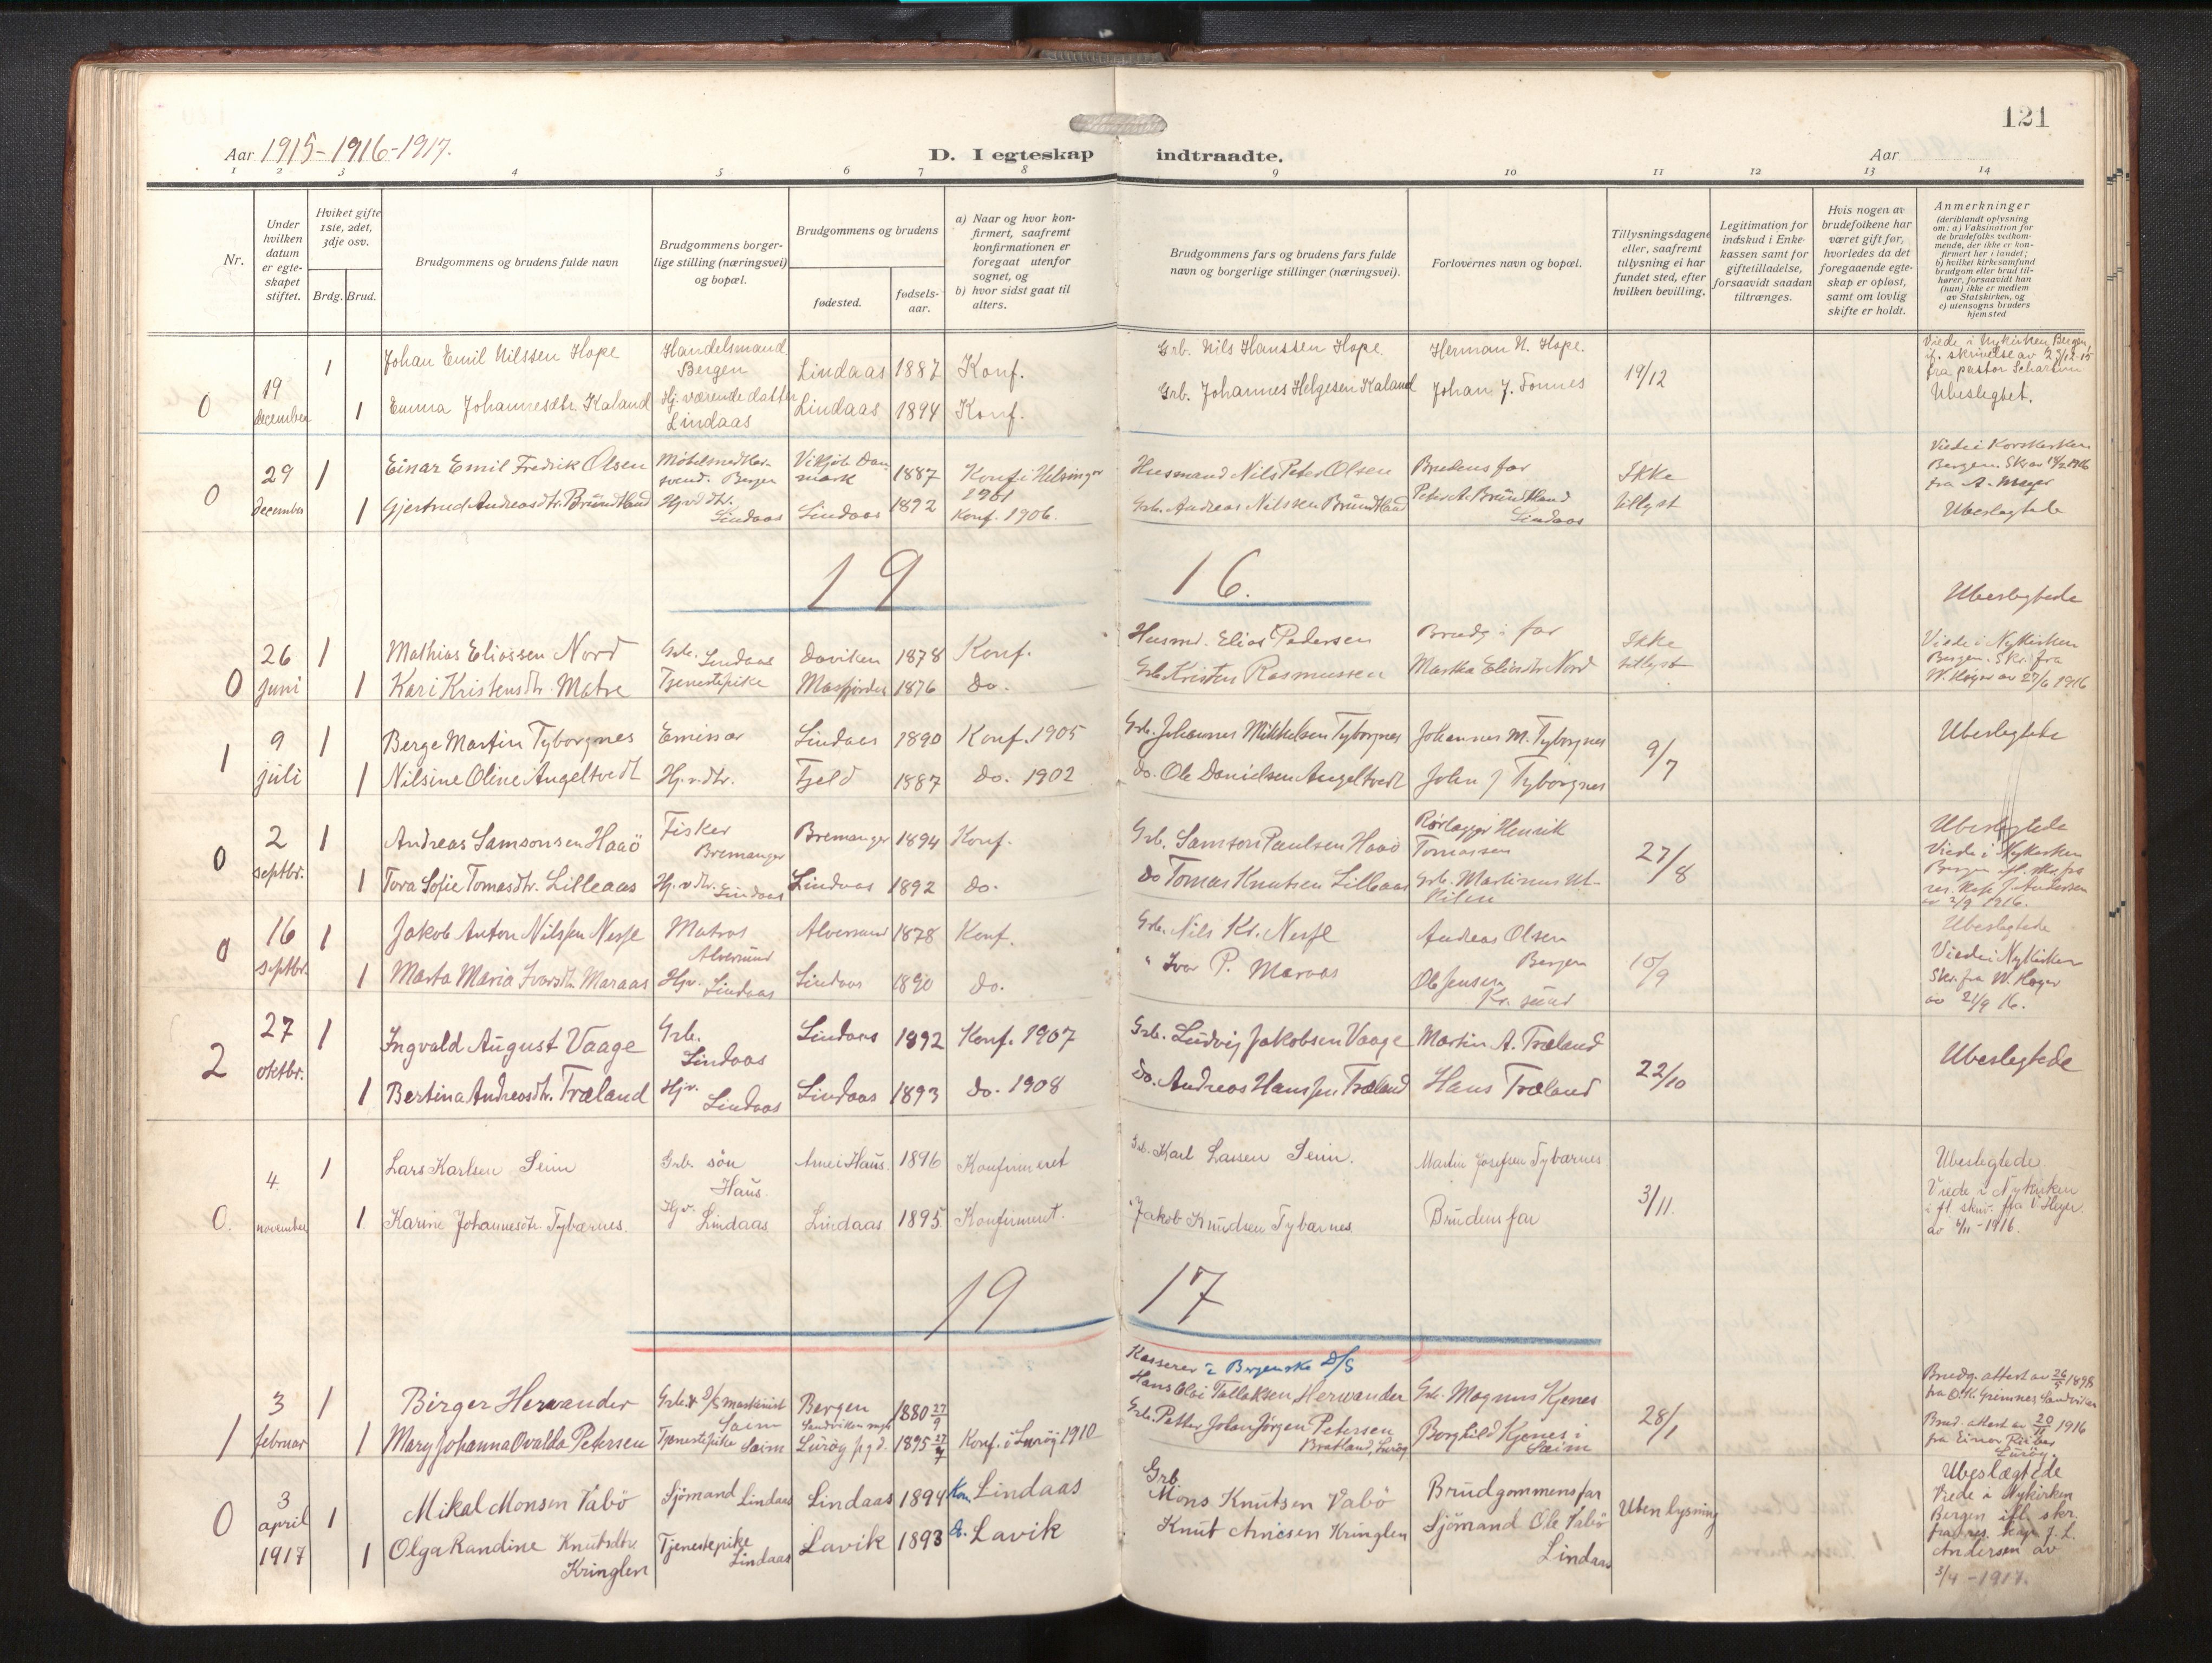 121
Aar 1915-1916-1917.
D. I egteskap indtraadte.
Aar
1 2 3 4 5 6 7 8 9 10 11 12 13 14
Nr.
Under
hvilken
datum
er egte-
skapet
stiftet.
Hvilket gifte
1ste, 2det,
3dje osv.
Brdg. Brud.
Brudgommens og brudens fulde navn
Brudgommens borger-
lige stilling (næringsvei)
og bopæl.
Brudgommens og brudens
fødested.
fødsels-
aar.
a) Naar og hvor kon-
firmert, saafremt
konfirmationen er
foregaat utenfor
sognet, og
b) hvor sidst gaat til
alters.
Brudgommens fars og brudens fars fulde
navn og borgerlige stillinger (næringsvei).
Forlovernes navn og bopæl.
Tillysningsdagene
eller, saafremt
tillysning ei har
fundet sted, efter
hvilken bevilling.
Legitimation for
indskud i Enke-
kassen samt for
giftetilladelse,
forsaavidt saadan
tiltrænges.
Hvis nogen av
brudefolkene har
været gift før,
hvorledes da det
foregaaende egte-
skap er opløst,
samt om lovlig
skifte er holdt.
Anmerkninger
(deriblandt oplysning
om: a) Vaksination for
de brudefolks vedkom-
mende, der ikke er kon-
firmert her i landet;
b) hvilket kirkesamfund
brudgom eller brud til-
hører, forsaavidt han
(hun) ikke er medlem
av Statskirken, og
c) utensogns bruders
hjemsted
0
19
december
1
Johan Emil Nilssen Hope
Handelsmand
Bergen
Lindaas 1887 Konf.
Grb. Nils Hanssen Hope
Herman N. Hope.
19/12
Viede i Nykirken Bergen,
if. skrivelse av 27/12-15
fra pastor Scharfun
Ubeslegtet.
1
Emma Johannesdtr. Kaland
Hj. værende datter
Lindaas
Lindaas 1894 Konf.
Grb. Johannes Helgesen Kaland
Johan J. Fonnes
0
29
december
1
Einar Emil Fredrik Olsen
Bergen
1887
Konf. i Helsingør
1901
Husmand Nils Peter Olsen
Brudens far
Ikke
tillyst
Viede i Korskirken
Bergen. Skr. av
fra A. Mager
Ubeslegtede
1
Gjertrud Andreasdtr. Brundtland
Hjv. dtr.
Lindaas
Lindaas 1892
Konf. 1906.
Grb. Andreas Nilssen Brundtland
Peter A. Brundtland
Lindaas
19 16.
0
26
juni
1
Mathias Eliassen Nord
Grb. Lindaas
Daviken 1878 Konf.
Husmd. Elias Pedersen
Brudg. far
Ikke
tillyst
Ubeslegtede
Viede i Nykirken
Bergen. Skr. fra
W. Høyer av 27/6 1916
1
Kari Kristensdtr. Matre
Tjenestepike
Masfjorden 1876 do.
Grb. Kristen Rasmussen
Martha Eliasdtr. Nord
1
9
juli
1
Berge Martin Tyborgnes
Emissær
Lindaas 1890 Konf. 1905
Grb. Johannes Mikkelsen Tyborgnes
Johannes M. Tyborgnes
9/7
Ubeslegtede
1
Nilsine Oline Angeltvedt
Hj. v. dtr.
Fjeld 1887 do. 1902
do. Ole Danielsen Angeltvedt
John J Tyborgnes
0
2
septbr.
1
Andreas Samsonsen Haaö
Fisker
Bremanger
Bremanger 1894 Konf.
Grb. Samson Paulsen Haaö
Rørlægger Henrik
Tomassen
27/8
Ubeslegtede
Viede i Nykirken
Bergen ifl. skr. fra
res. kap. J. Andersen
av 2/9 1916.
1
Tora Sofie Tomasdtr. Lilleaas
Hj. v. dtr. Lindaas
Lindaas 1892 do.
do Tomas Knutsen Lilleaas
Grb. Martinus M.
Nilen
0
16
septbr.
1
Jakob Anton Nilssen Nesse
Matros
Alversund
Alversund 1878 Konf.
Grb. Nils Kr. Nesse
Andreas Olsen
Bergen
10/9
Ubeslegtede
Viede i Nykirken
Skr. fra W. Høyer
av 21/9 16.
1
Marta Maria Ivarsdtr. Maraas
Hjv. Lindaas
Lindaas 1890 do.
" Ivar P. Maraas
Ole Jensen
Kr. sund
2
27
oktbr.
1
Ingvald August Vaage
Grb.
Lindaas
Lindaas 1892 Konf. 1907
Grb. Ludvig Jakobsen Vaage
Martin A. Træland
22/10
Ubeslegtede
1
Bertina Andreasdtr. Træland
Hjv.
Lindaas
Lindaas 1893 do. 1908
do. Andreas Hanssen Træland
Hans Træland
0.
4.
november
1
Lars Karlsen Seim
Grb. søn
Haus.
Arne i Haus. 1896 Konfirmeret
Grb. Karl Larsen Seim.
Martin Josefsen Tybarnes
3/11.
Ubeslegtede
Viede i Nykirken
ifl. skriv. fra V. Høyer.
av 4/11-1916.
1.
Karine Johannesdtr. Tybarnes.
Hjv. Lindaas
Lindaas 1895. Konfirmeret.
" Jakob Knudsen Tybarnes.
Brudens far
19 17
1
3
februar
1
Birger Herwander
Grb. & D/S maskinist
Saim
Bergen
Sandviken
1880 27/9
Kasserer i Bergenske D/S
Hans Olai Tallaksen Herwander
Grb. Magnus Kjenes
28/1
Brudg. attest av 26/5 1898
fra O. K. Grimnes Sandviken
Brud. attest av 20/11 1916
fra Einar
Lurøy.
1
Mary Johanna Ovalda Petersen
Tjenestepike Saim
Lurøy pgd. 1895 17/7 Konf. i Lurøy 1910
Grb. Petter Johan Jørgen Petersen
Bratland, Lurøy
Borghild Kjenes i
Saim
0
3
april
1917
1
Mikal Monsen Vabö
Sjömand Lindaas
Lindaas 1894 Kon. Lindaas
Grb.
Mons Knutsen Vabö
Brudgommens far
Uten lysning
Ubeslægtede
Viede i Nykirken
Bergen ifl. skr.
fra res. kap. J. L.
Andersen av
3/4-1917.
1
Olga Randine Knutsdtr.
Kringlen
Tjenestepike
Lindaas
Lavik 1893 do. Lavik
Knut Arnesen Kringlen
Sjömand Ole Vabö
Lindaas